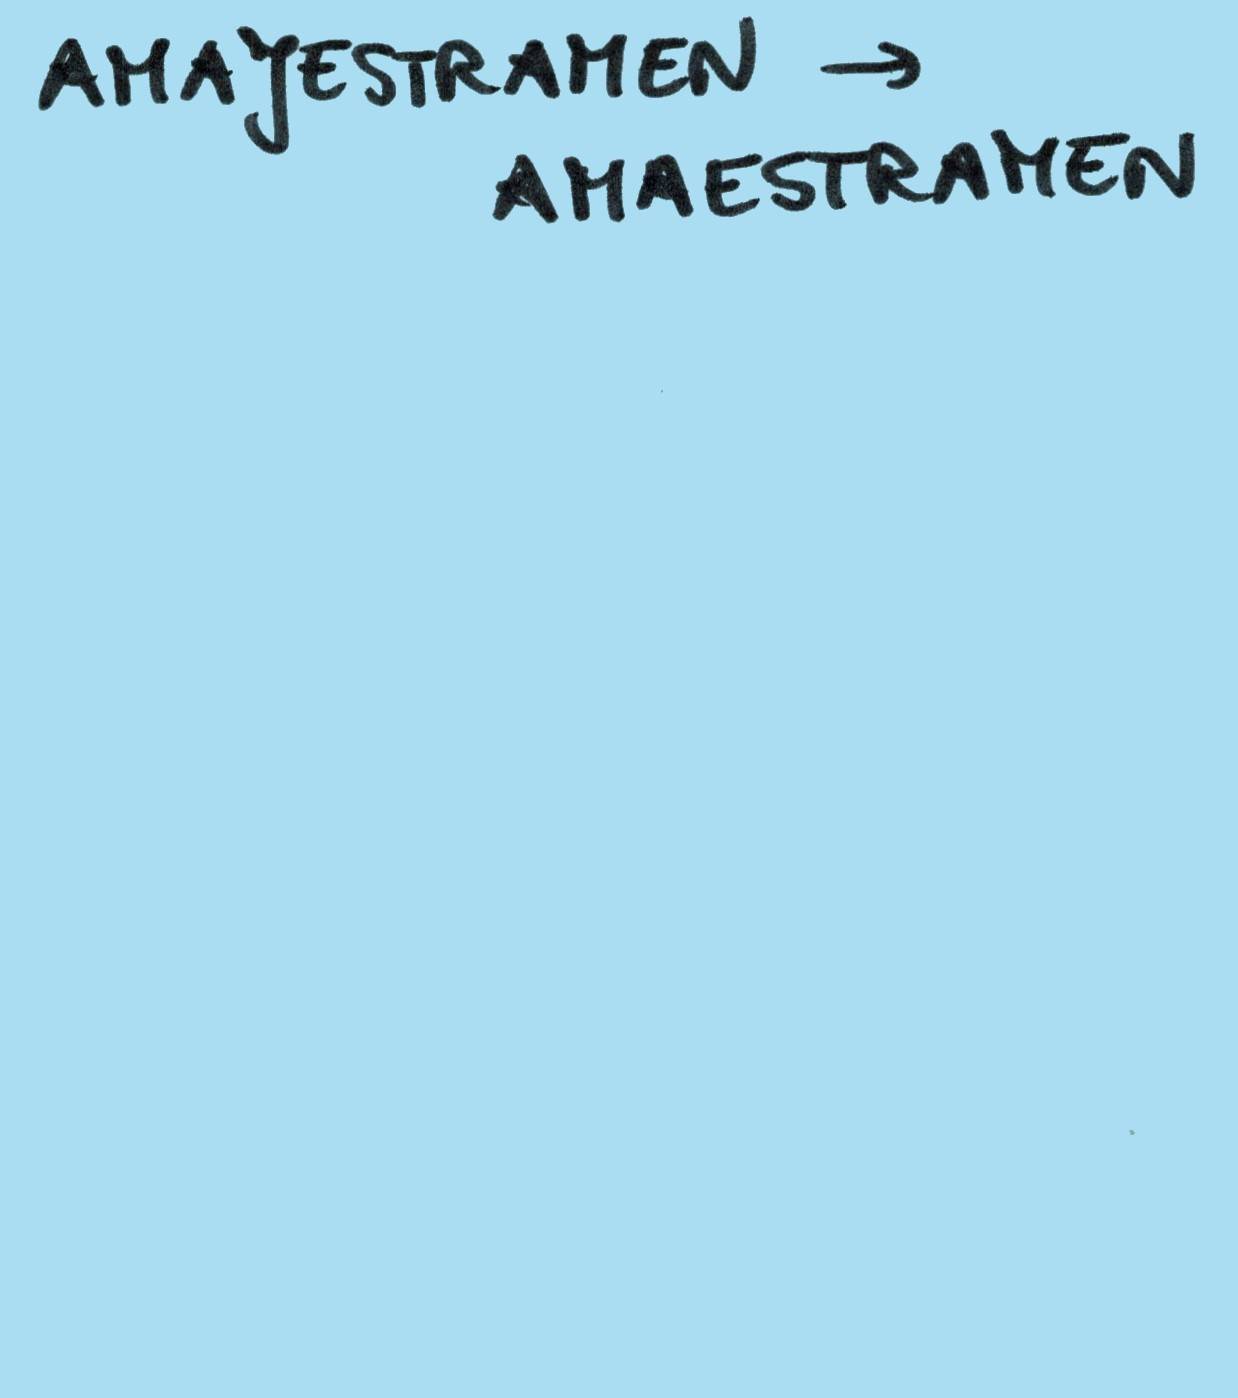 AMAYESTRAMEN →
AMAESTRAMEN